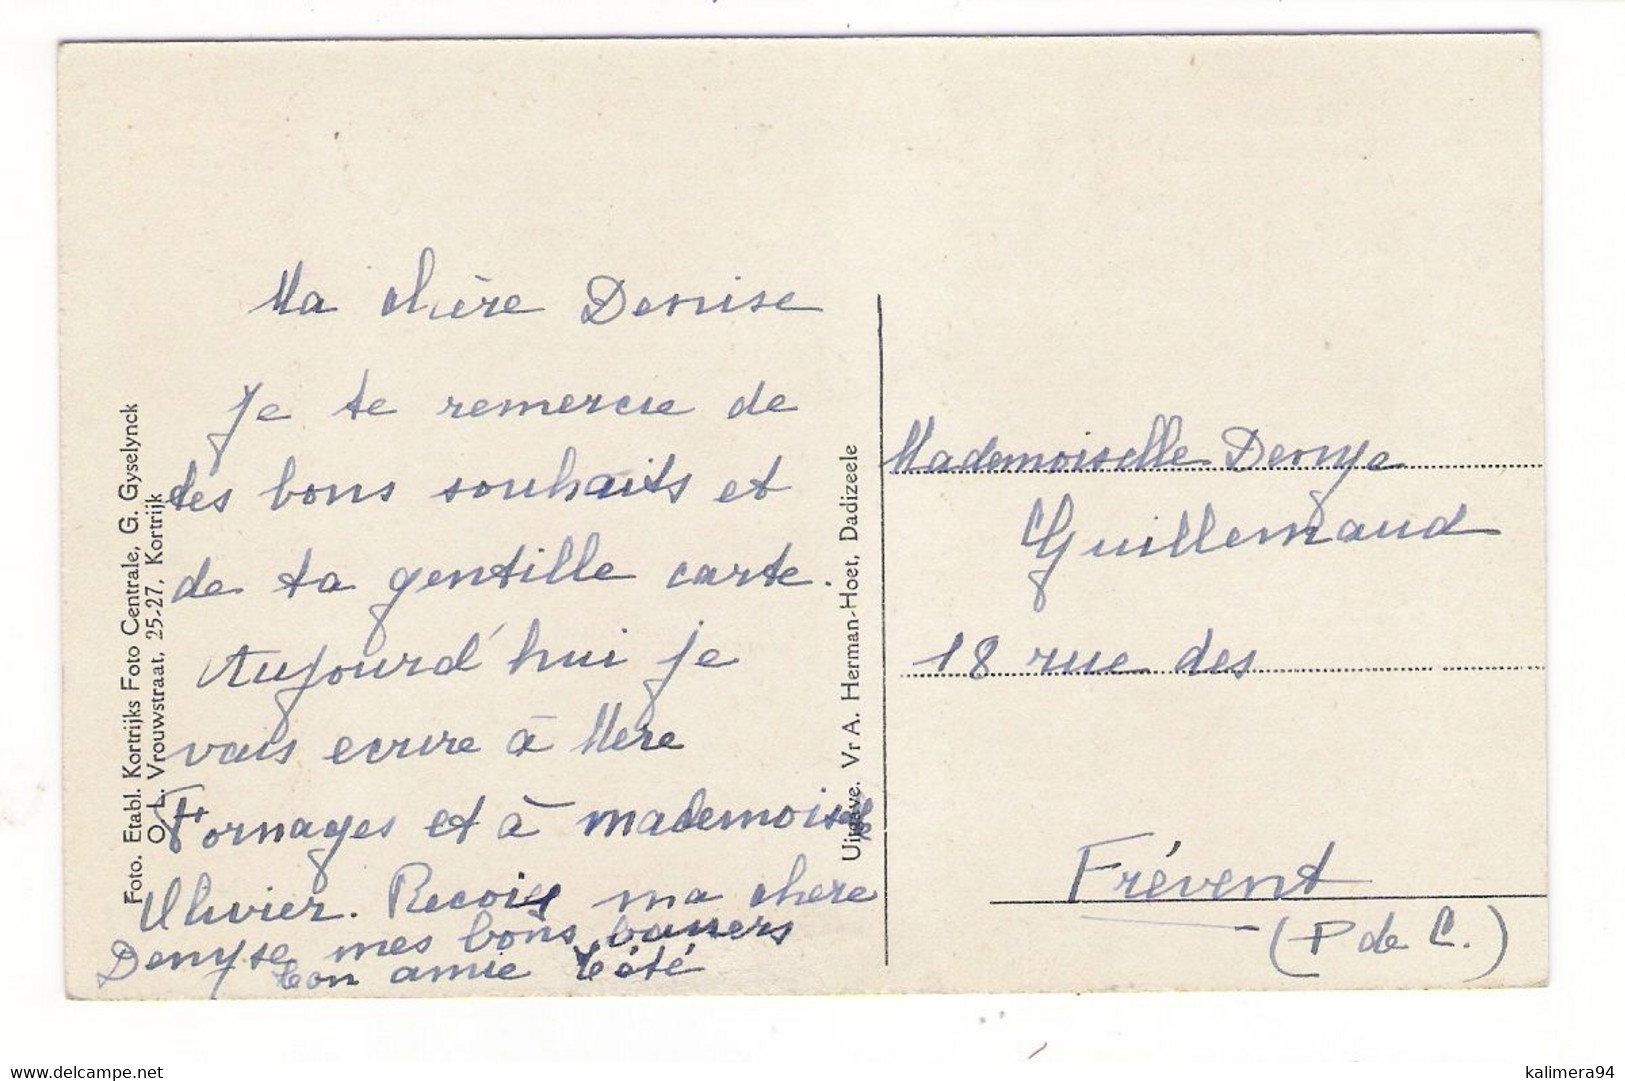 Ma chère Denise
Je te remercie de
tes bons souhaits et
de ta gentille carte.
Aujourd'hui je
vais ecrire à Mere
Fornages et à mademoiselle
Olivier. Recois ma chere
Denyse mes bons baisers
ton amie Tété
Foto. Etabl. Kortrijks Foto Centrale, G. Gyselynck
O. L. Vrouwstraat, 25-27, Kortrijk
Uitgave. Vr A. Herman-Hoet, Dadizeele
Mademoiselle Denyse
Guillemaud
18 rue des
Frévent
(P de C.)
www.delcampe.net
kalimera94